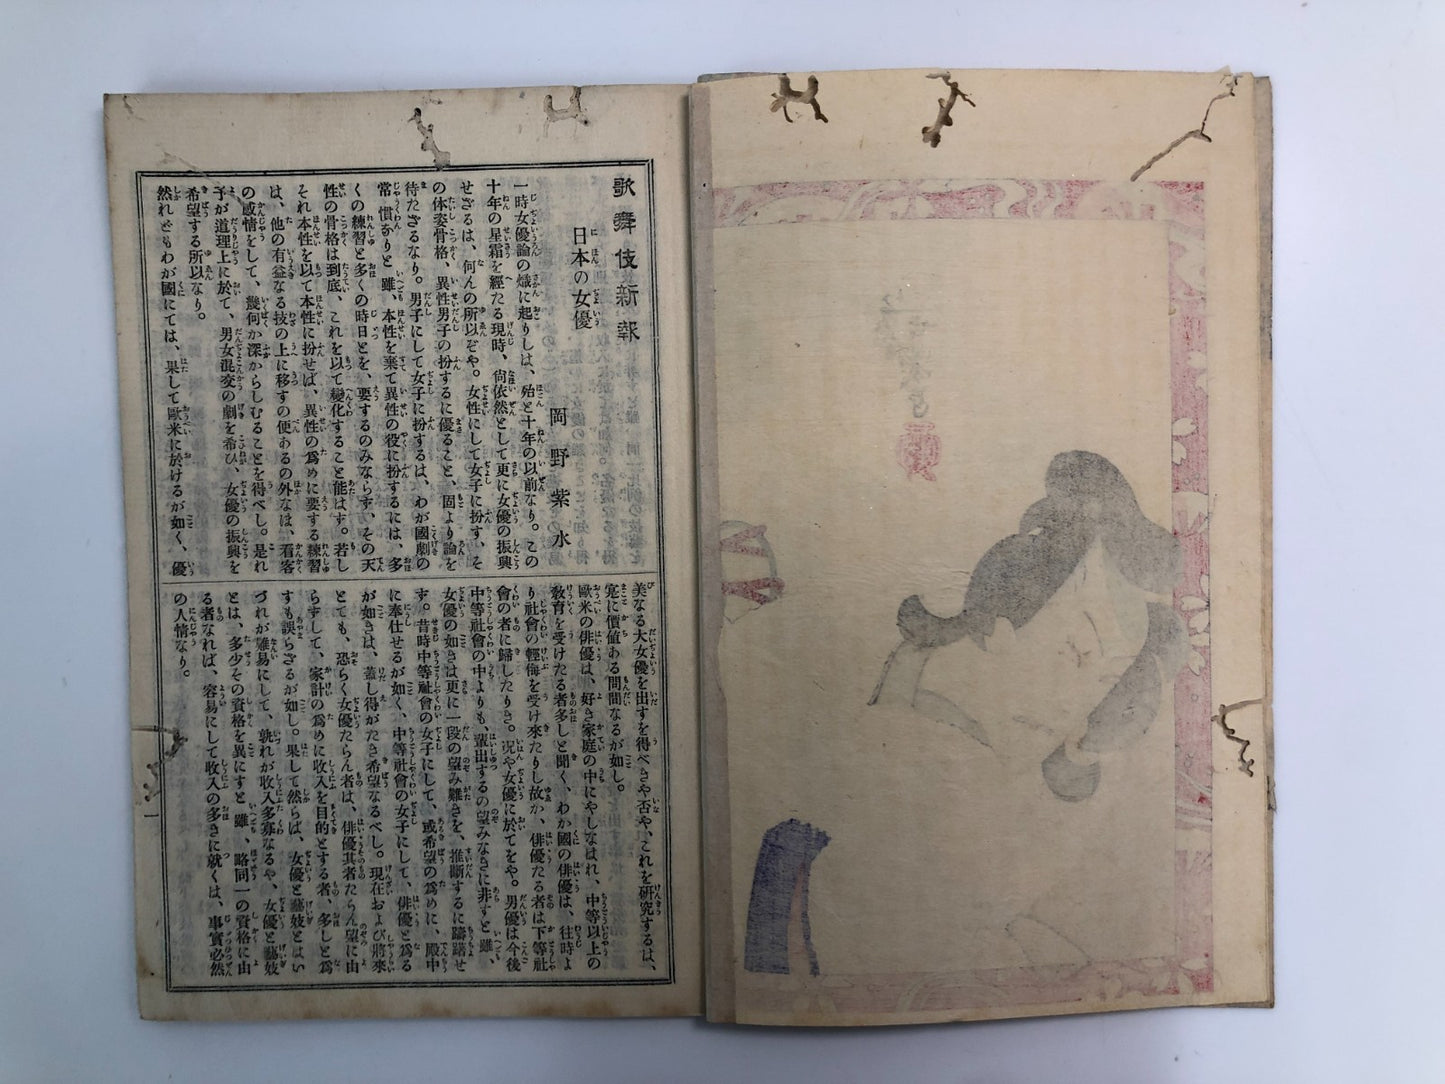 歌舞伎新報
日本の女優
岡野紫水
一時女優論の熾に起りしは、殆と十年の以前なり。この
十年の星霜を經たる現時、尙依然として更に女優の振興
せざるは、何んの所以ぞや。女性にして女子に扮す、そ
の体姿骨格、異性男子の扮するに優ること、固より論を
待たざるなり。男子にして女子に扮するは、わが國劇の
常慣なりと雖、本性を棄て異性の役に扮するには、多
くの練習と多くの時日とを、要するのみならす、その天
性の骨格は到底、これを以て變化すること能はす。若し
それ本性を以て本性に扮せば、異性の爲めに要する練習
は、他の有益なる技の上に移すの便あるの外なほ、看客
の感情をして、幾何か深からしむることを得べし。是れ
予が道理上に於て、男女混交の劇を希ひ、女優の振興を
希望する所以なり。
然れどもわが國にては、果して歐米に於けるが如く、優
美なる大女優を出すを得べきや否や、これを研究するは、
寔に價値ある問題なるが如し。
歐米の俳優は、好き家庭の中にやしなはれ、中等以上の
敎育を受けたる者多しと聞く、わか國の俳優は、往時よ
り社會の輕侮を受け來たりし故か、俳優たる者は下等社
會の者に歸したりき。况や女優に於てをや。男優は今後
中等社會の中よりも輩出するの望みなきに非すと雖、
女優の如きは更に一段の望み難きを、推斷するに躊躇せ
す。昔時中等社會の女子にして、或希望の爲めに、殿中
に奉仕せるが如く、中等社會の女子にして、俳優と爲る
が如きは、蓋し得がたき希望なるべし。現在および將來
とても、恐らく女優たらん者は、俳優其者たらん望に由
らずして、家計の爲めに收入を目的とする者、多しと爲
すも誤らざるが如し。果して然らば、女優と藝妓とはい
づれが難易にして、孰れが收入多寡なるや、女優と藝妓
とは、多少その資格を異にすと雖、略同一の資格に由
る者なれば、容易にして收入の多きに就くは、事實必然
の人情なり。
一